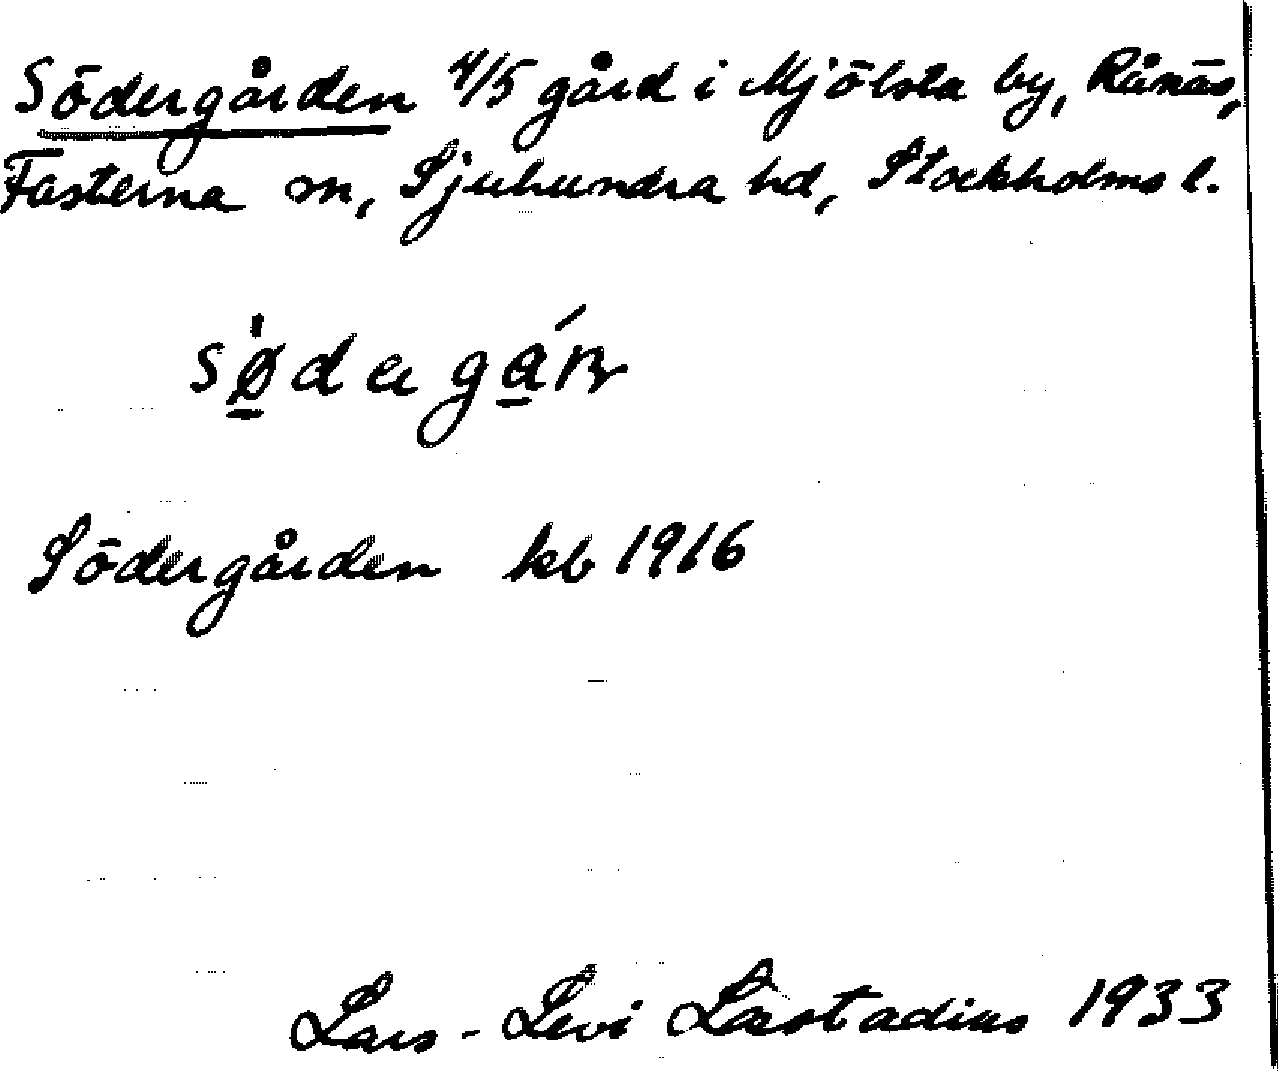 Södergården 4/5 gård i Mjölsta by, Rånäs,
Fasterna sn, Sjuhundra hd, Stockholms l.
Södergården kb 1916
Lars-Levi Læstadius 1933